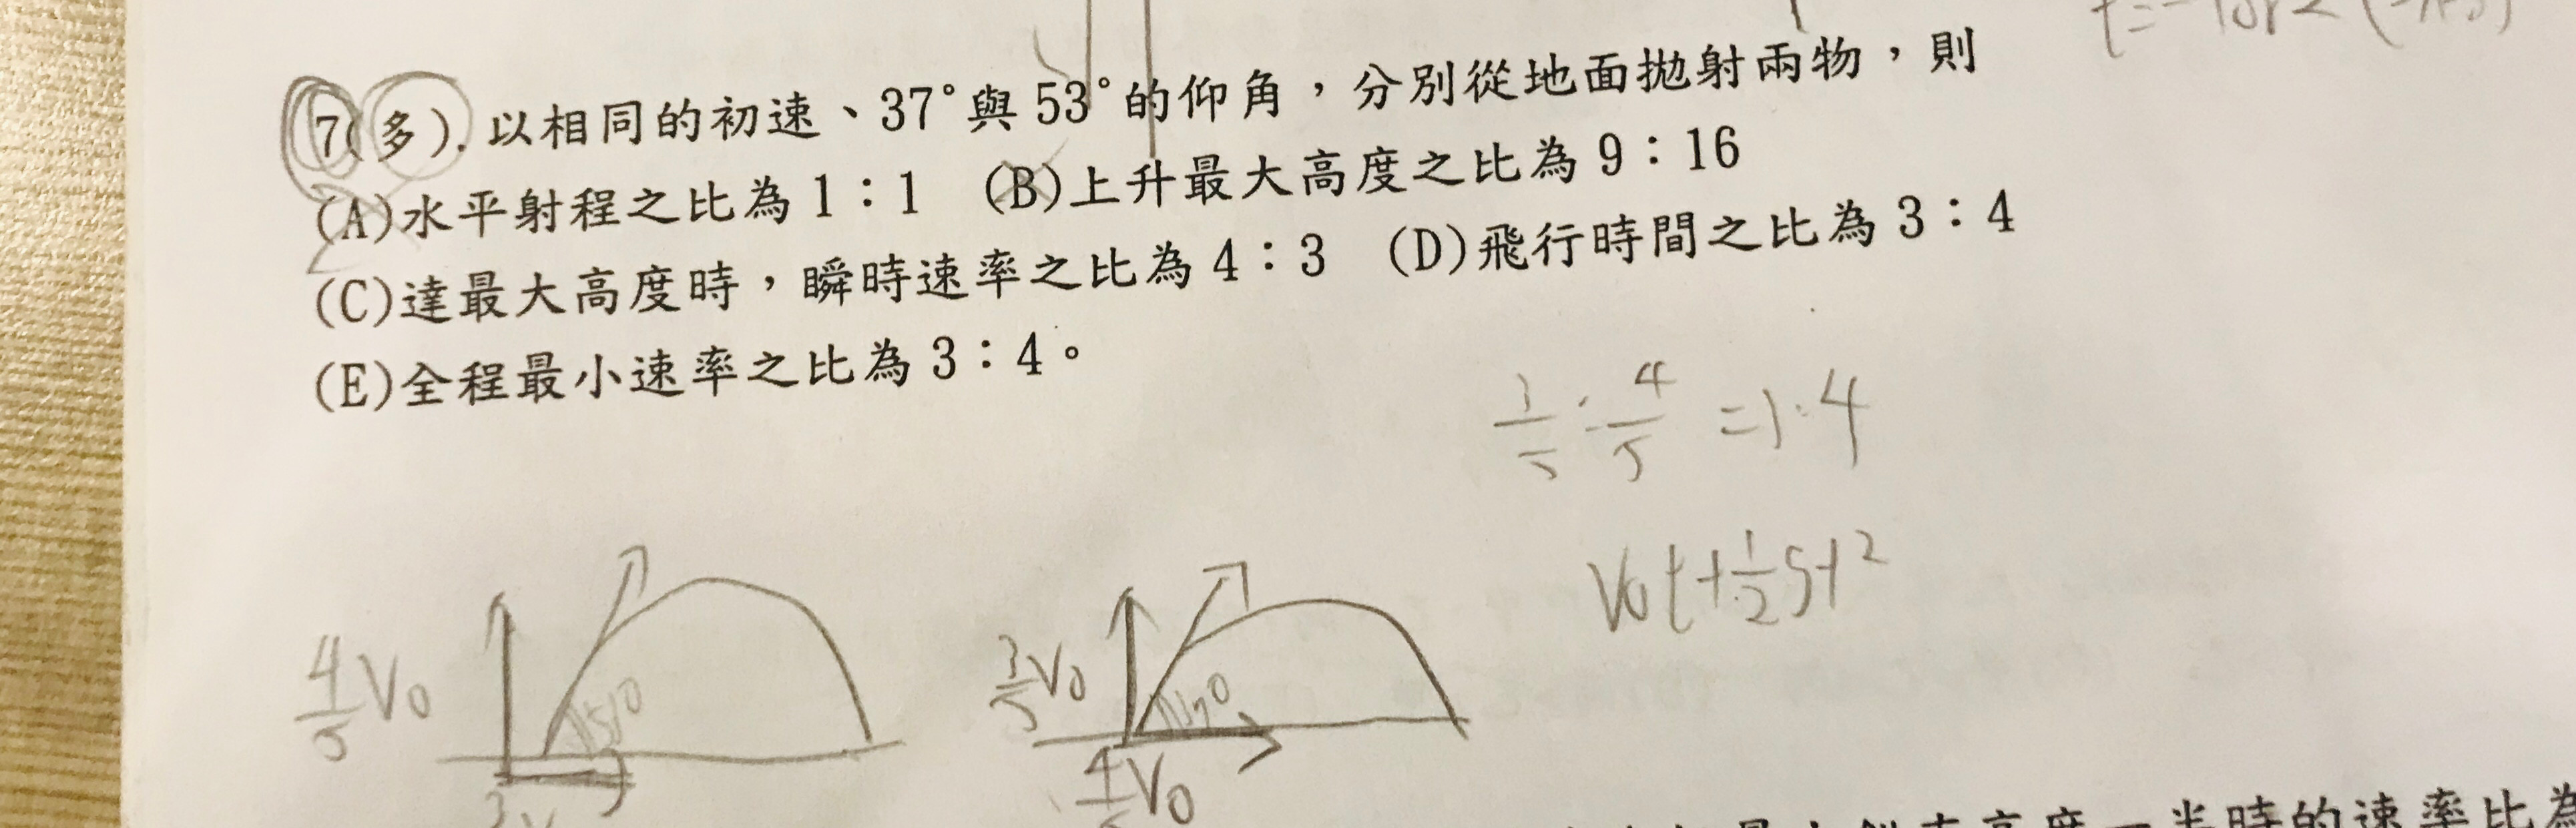 7(多).以相同的初速、37°與53°的仰角，分別從地面拋射兩物，則
(A)水平射程之比為1：1 (B)上升最大高度之比為9：16
(C)達最大高度時，瞬時速率之比為4：3 (D)飛行時間之比為3：4
(E)全程最小速率之比為3：4。
4/5 V0
3/5 V0
4/5 V0
V0t+1/2gt²
高度一半時的速率比為